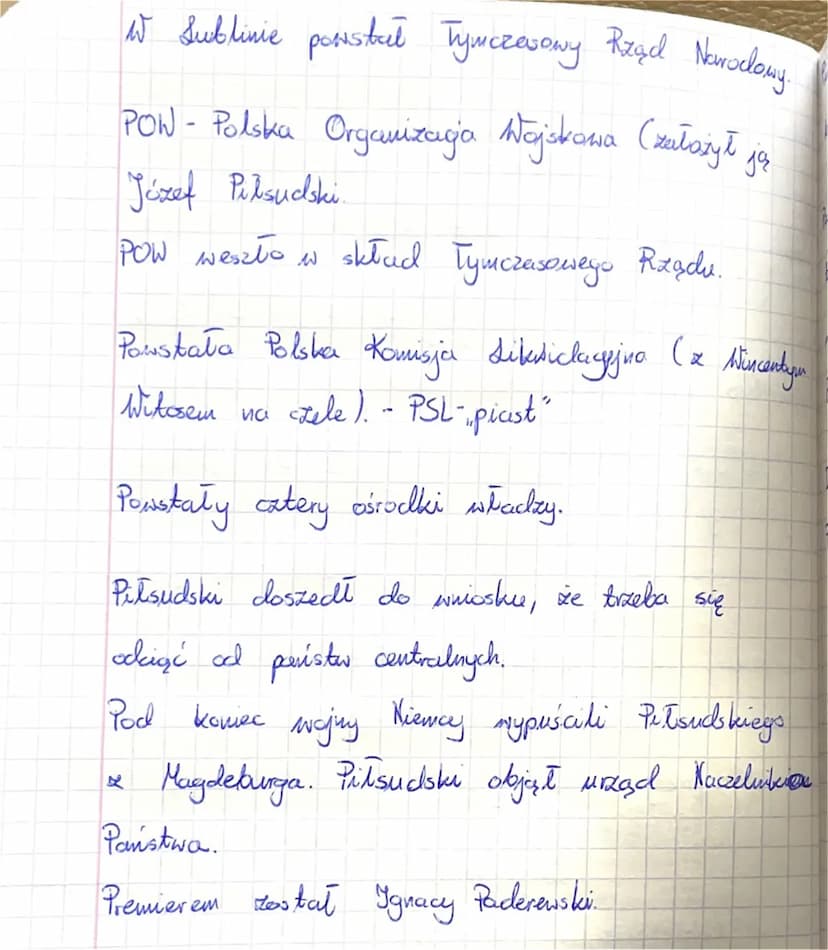 W Lublinie powstał Tymczasowy Rząd Narodowy.
POW - Polska Organizacja Wojskowa (założył ją
Józef Piłsudski.
POW weszło w skład Tymczasowego Rządu.
Powstała Polska Komisja Likwidacyjna (z Wincentym
Witosem na czele). - PSL-„piast”
Powstały cztery ośrodki władzy.
Piłsudski doszedł do wniosku, że trzeba się
odciąć od państw centralnych.
Pod koniec wojny Niemcy wypuścili Piłsudskiego
z Magdeburga. Piłsudski objął urząd Naczelnika
Państwa.
Premierem został Ignacy Paderewski.